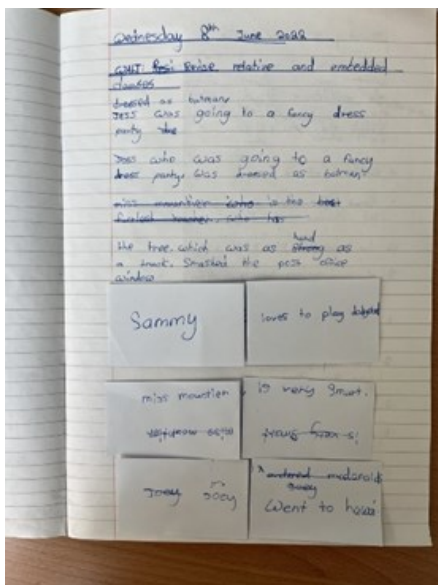 Wednesday 8th June 2022
relative and embedded
clauses
dressed as batman
Jess was going to a fancy dress
party
Joss who was going to a fancy
dress party. Was dressed as batman
miss mounstier who is the best
teacher. who has
the tree. which was as hard as
a truck. Smashed the post office
window
Sammy
loves to play
miss mounstier
is very smart.
Joey Joey
mcdonolds
Went to hawai